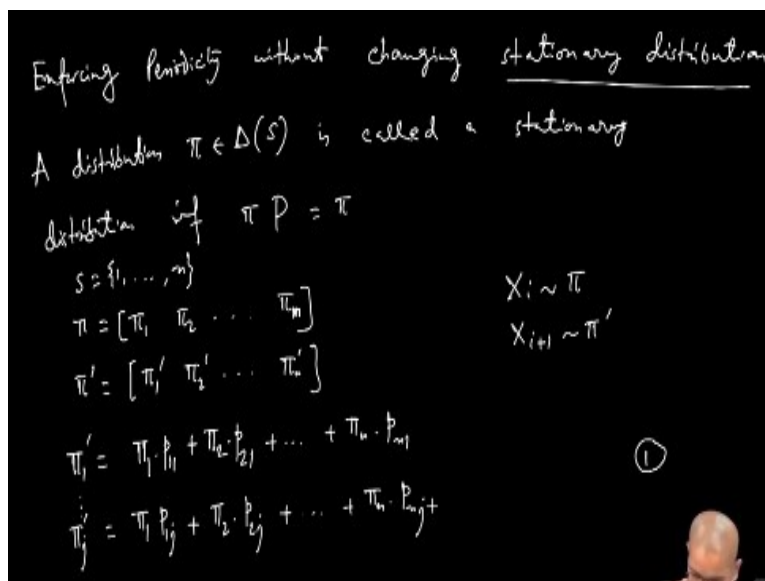 Enforcing Periodicity without changing stationary distribution
A distribution π ∈ Δ(S) is called a stationary
distribution if π P = π
S = {1, ..., n}
π = [π₁ π₂ ... πₙ]
π' = [π₁' π₂' ... πₙ']
Xᵢ ~ π
Xᵢ₊₁ ~ π'
π₁' = π₁·P₁₁ + π₂·P₂₁ + ... + πₙ·Pₙ₁
⋮
πⱼ' = π₁ P₁ⱼ + π₂·P₂ⱼ + ... + πₙ·Pₙⱼ+
①